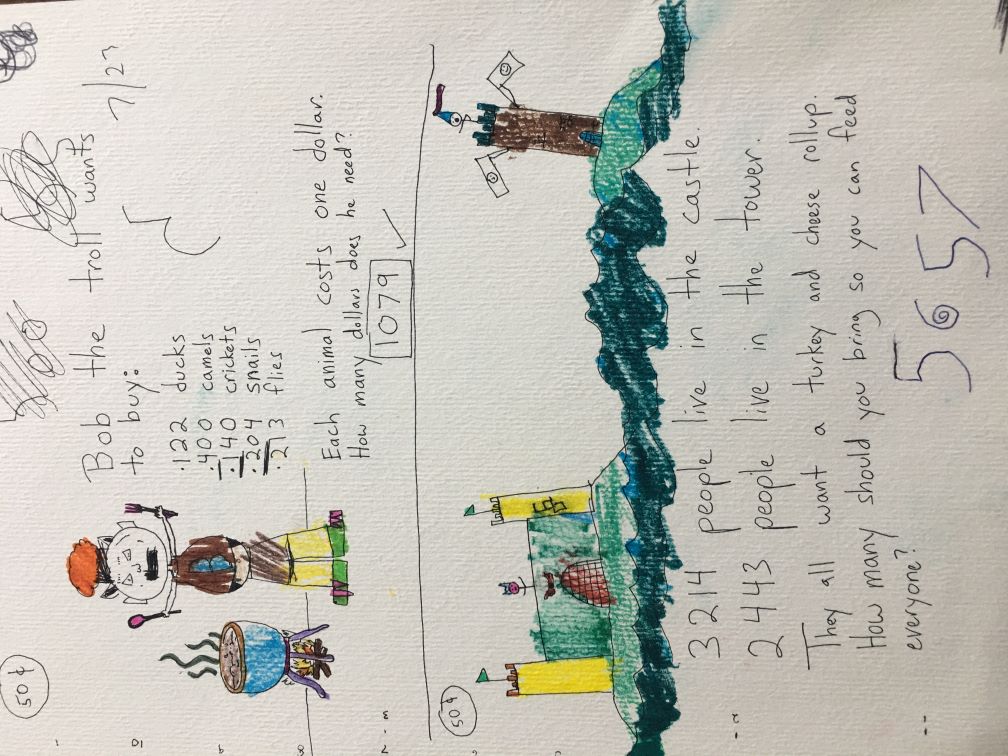 50¢
Bob the troll wants
to buy:
7/23
·122 ducks
·400 camels
·140 crickets
·204 snails
·213 flies
Each animal costs one dollar.
How many dollars does he need?
1079 ✓
50¢
3214 people live in the castle.
2443 people live in the tower.
They all want a turkey and cheese rollup.
How many should you bring so you can feed
everyone?
5657